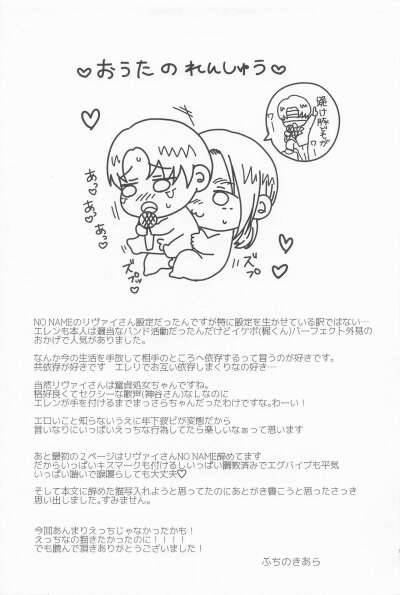 ♡おうたのれんしゅう♡
跪け豚共が
ワー
ワー
あっ♡
あっ♡
あっ♡
ズプ
ズプ
NO NAMEのリヴァイさん設定だったんですが特に設定を生かせている訳ではない…
エレンも本人は適当なバンド活動だったんだけどイケボ(梶くん)パーフェクト外見の
おかげで人気がありました。
なんか今の生活を手放して相手のところへ依存するって言うのが好きです。
共依存が好きです　エレリでお互い依存しまくりなの好き…
当然リヴァイさんは童貞処女ちゃんですね。
格好良くてセクシーな歌声(神谷さん)なしなのに
エレンが手を付けるまでまっさらちゃんだったわけですな。わーい！
エロいこと知らないうえに年下彼ピが変態だから
言いなりにいっぱいえっちな行為してたら楽しいなぁって思います
あと最初の２ページはリヴァイさんNO NAME辞めてます
だからいっぱいキスマークも付けるしいっぱい調教済みでエグバイブも平気
いっぱい喘いで喉嗄らしても大丈夫♡
そして本文に辞めた描写入れようと思ってたのにあとがき書こうと思ったさっき
思い出しました。すみません。
今回あんまりえっちじゃなかったかも！
えっちなの描きたかったのに！！！！
でも読んで頂きありがとうございました！
ふちのきあら